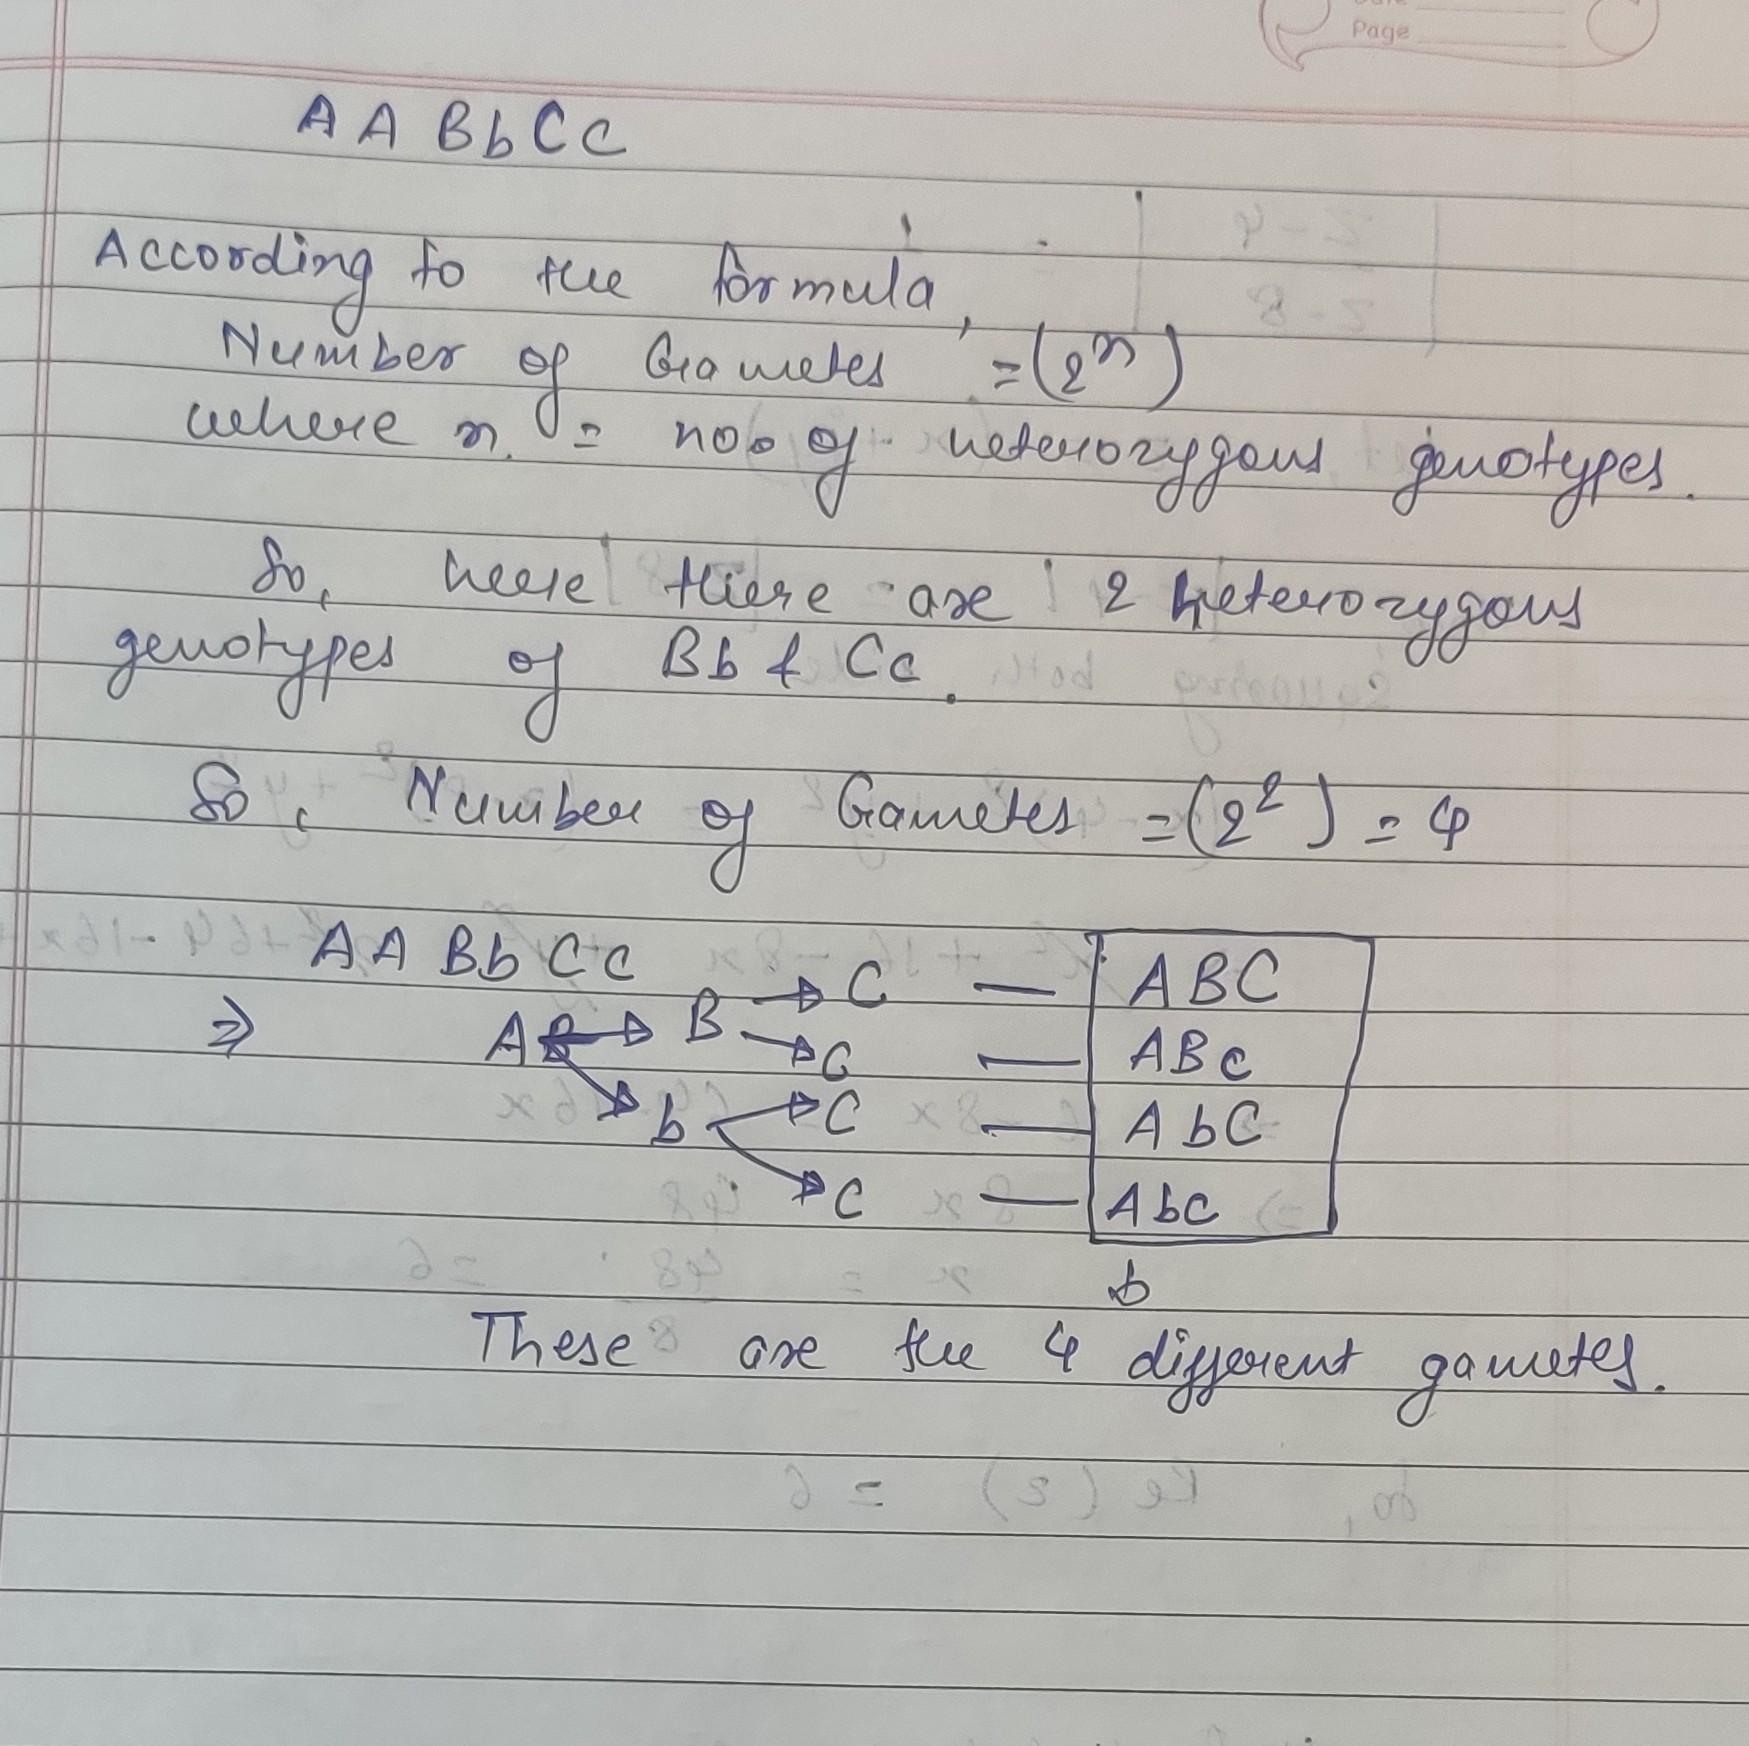 Page
A A B b C c
According to the formula,
Number of Gametes = (2ⁿ)
where n = no. of heterozygous genotypes.
So, here there are 2 heterozygous
genotypes of Bb & Cc.
So, Number of Gametes = (2²) = 4
A A B b C c
C — ABC
⇒ A → B → c — ABc
b → C — AbC
c — Abc
These are the 4 different gametes.